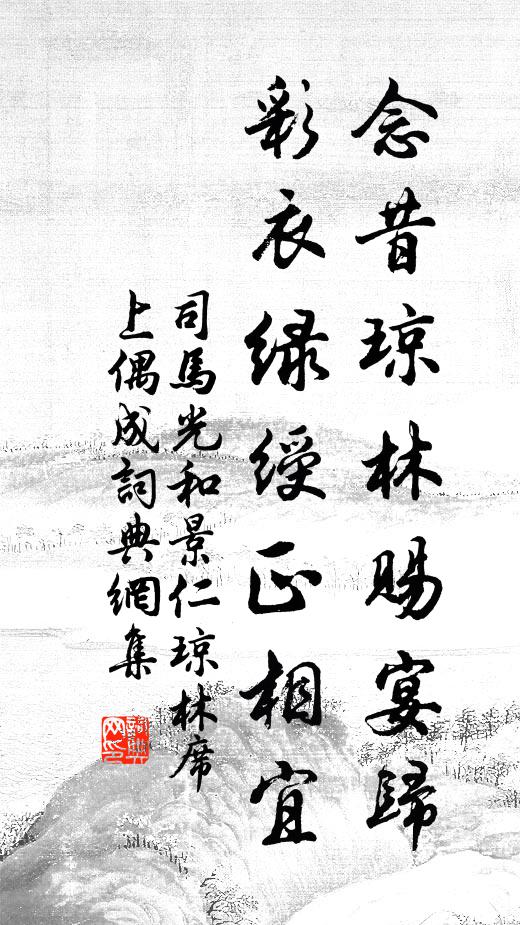 念昔琼林賜宴歸
彩衣绿綬正相宜
司馬光和景仁琼林席
上偶成詞典網集